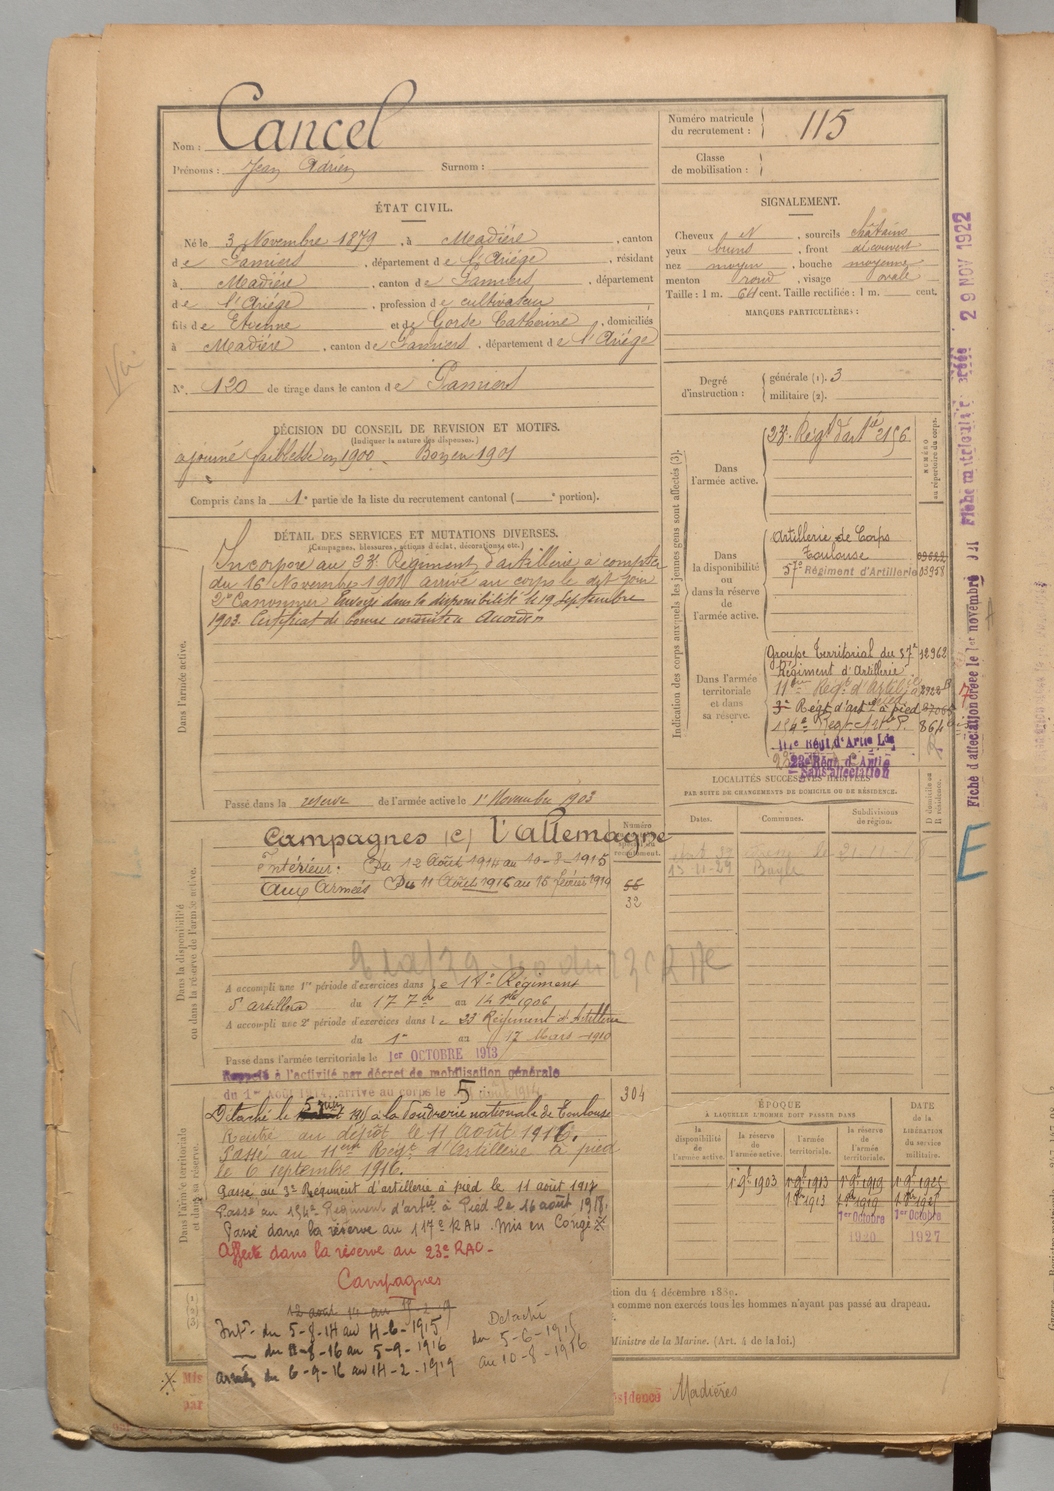 Nom : Cancel
Prénoms : Jean Adrien Surnom :
Numéro matricule du recrutement : 115
Classe de mobilisation :
ÉTAT CIVIL.
Né le 3 Novembre 1879, à Madière, canton
de Pamiers, département de l'Ariège, résidant
à Madière, canton de Pamiers, département
de l'Ariège, profession de cultivateur
fils de Etienne et de Gorse Catherine, domiciliés
à Madière, canton de Pamiers, département de l'Ariège
N° 120 de tirage dans le canton de Pamiers
SIGNALEMENT.
Cheveux N, sourcils châtains
yeux bruns, front découvert
nez moyen, bouche moyenne
menton rond, visage ovale
Taille : 1 m. 64 cent. Taille rectifiée : 1 m. cent.
MARQUES PARTICULIÈRES :
Degré d'instruction : générale (1). 3
militaire (2).
DÉCISION DU CONSEIL DE REVISION ET MOTIFS.
(Indiquer la nature des dispenses.)
ajourné faiblesse en 1900. Bon en 1901
Compris dans la 1e partie de la liste du recrutement cantonal ( e portion).
DÉTAIL DES SERVICES ET MUTATIONS DIVERSES.
(Campagnes, blessures, actions d'éclat, décorations, etc.)
Dans l'armée active.
Incorporé au 23e Régiment d'artillerie à compter
du 16 Novembre 1901 arrivé au corps le dit jour
2e Canonnier Envoyé dans la disponibilité le 19 Septembre
1903. Certificat de bonne conduite Accordé
Passé dans la réserve de l'armée active le 1er Novembre 1903
Indication des corps auxquels les jeunes gens sont affectés (3).
NUMÉRO au répertoire du corps.
Dans l'armée active.
23e Régt d'artie 2156
Dans la disponibilité ou dans la réserve de l'armée active.
Artillerie de Corps
Toulouse
57e Régiment d'Artillerie 03958
Dans l'armée territoriale et dans sa réserve.
Groupe Territorial du 57e 12962
Régiment d'Artillerie
11ème Régt d'Artie à pied
3e Régt d'arte à pied
184e Regt Artie P. 864
117e Régt d'Artie Lde
23e Régt d'Artie
Sans affectation
LOCALITÉS SUCCESSIVES HABITÉES
PAR SUITE DE CHANGEMENTS DE DOMICILE OU DE RÉSIDENCE.
Dates. Communes. Subdivisions de région. D domicile ou R résidence.
13-11-29 Bayle
Dans la disponibilité ou dans la réserve de l'armée active.
Campagnes (c) l'Allemagne
Intérieur : Du 12 Août 1914 au 10-8-1915
Aux Armées Du 11 Août 1916 au 15 février 1919
56
32
A accompli une 1re période d'exercices dans le 18e Régiment
d'artillerie du 17 7bre au 14 8bre 1906
A accompli une 2e période d'exercices dans le 23 Régiment d'Artillerie
du 1er au 17 Mars 1910
Passé dans l'armée territoriale le 1er OCTOBRE 1913
Rappelé à l'activité par décret de mobilisation générale
du 1er Août 1914, arrivé au corps le 5 août 1914
304
Dans l'armée territoriale et dans sa réserve.
Détaché le 5 juin 1915 à la Poudrerie nationale de Toulouse
Rentré au dépôt le 11 Août 1916.
Passé au 11ème Régt d'Artillerie à pied
le 6 septembre 1916.
Passé au 3e Régiment d'artillerie à pied le 11 août 1917
Passé au 184e Régiment d'artie à Pied le 16 août 1918.
Passé dans la réserve au 117e RAL. Mis en Congé
Affecté dans la réserve au 23e RAC.
Campagnes
12 août 14 au
Intr. du 5-8-14 au 4-6-1915
— du 11-8-16 au 5-9-1916
armées du 6-9-16 au 14-2-1919
Detaché
du 5-6-1915
au 10-8-1916
ÉPOQUE
À LAQUELLE L'HOMME DOIT PASSER DANS
DATE de la LIBÉRATION du service militaire.
la disponibilité de l'armée active. la réserve de l'armée active. l'armée territoriale. la réserve de l'armée territoriale.
1er 9bre 1903 1er 9bre 1913 1er 9bre 1919 1er 9bre 1925
1er 8bre 1913 1er 8bre 1919 1er 8bre 1925
1er Octobre 1er Octobre
1920 1927
tion du 4 décembre 1889.
a comme non exercés tous les hommes n'ayant pas passé au drapeau.
Ministre de la Marine. (Art. 4 de la loi.)
Mis
par
résidence Madières
Fiche d'affectation créée le 1er novembre
Fiche matriculaire créée 29 NOV 1922
E